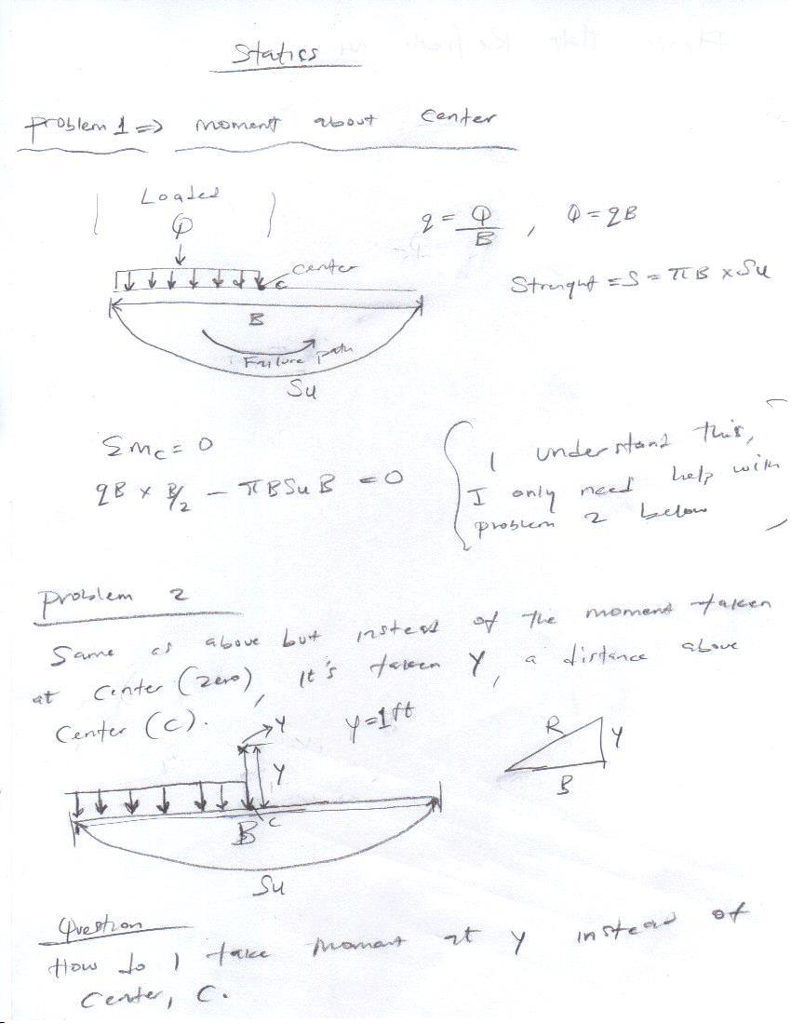 Statics
Problem 1 => moment about center
Loaded
Q
q = Q/B , Q = qB
center
c
Strenght = S = πB x Su
B
Failure path
Su
ΣMc = 0
qB x B/2 - πBSuB = 0
I understand this,
I only need help with
problem 2 below
Problem 2
Same as above but instead of the moment taken
at center (zero), it's taken Y, a distance above
center (C).
Y
Y=1ft
Y
R
Y
B
B
c
Su
Question
How do I take moment at Y instead of
center, C.